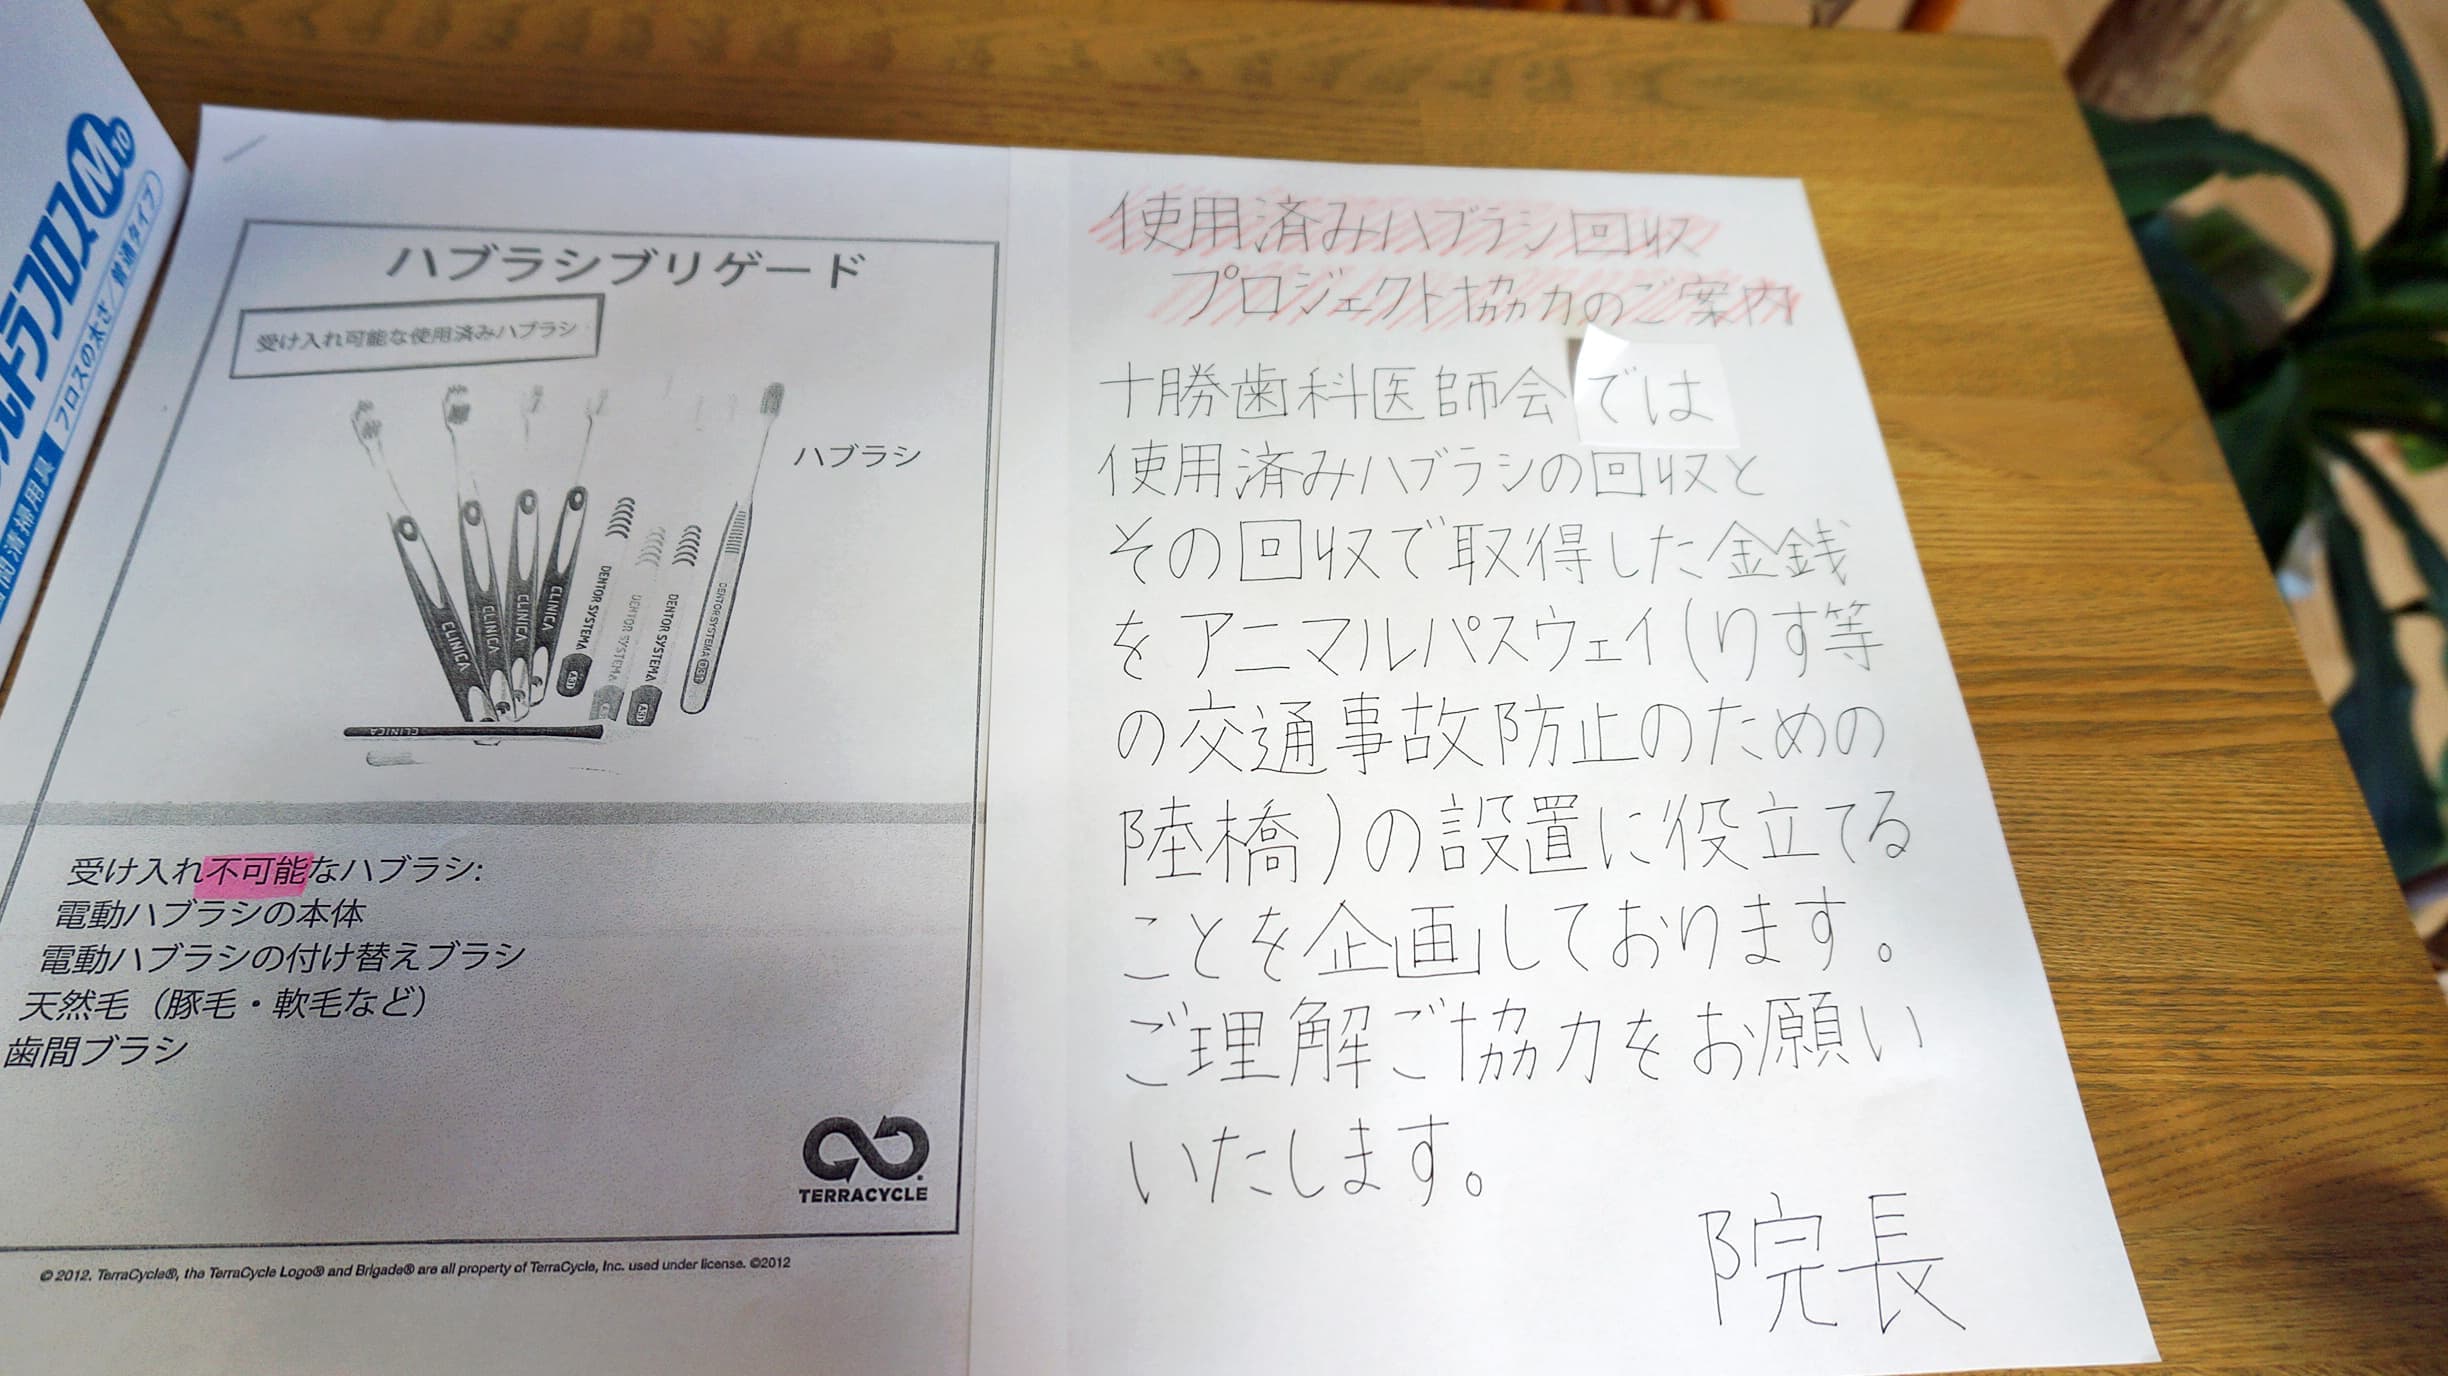 ルトラフロス M10
フロスの太さ/普通タイプ
間清掃用具
ハブラシブリゲード
受け入れ可能な使用済みハブラシ
ハブラシ
CLINICA
CLINICA
CLINICA
CLINICA
DENTOR SYSTEMA
DENTOR SYSTEMA
DENTOR SYSTEMA
DENTOR SYSTEMA
CLINICA
受け入れ不可能なハブラシ:
電動ハブラシの本体
電動ハブラシの付け替えブラシ
天然毛（豚毛・軟毛など）
歯間ブラシ
TERRACYCLE
© 2012. TerraCycle®, the TerraCycle Logo® and Brigade® are all property of TerraCycle, Inc. used under license. ©2012
使用済みハブラシ回収
プロジェクト協力のご案内
十勝歯科医師会では
使用済みハブラシの回収と
その回収で取得した金銭
をアニマルパスウェイ(りす等
の交通事故防止のための
陸橋)の設置に役立てる
ことを企画しております。
ご理解ご協力をお願い
いたします。
院長